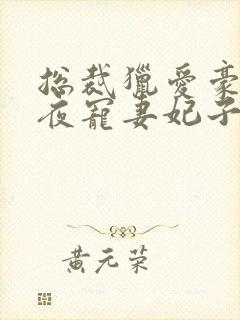 总裁獵爱豪
夜寵妻妃子
黄元荣